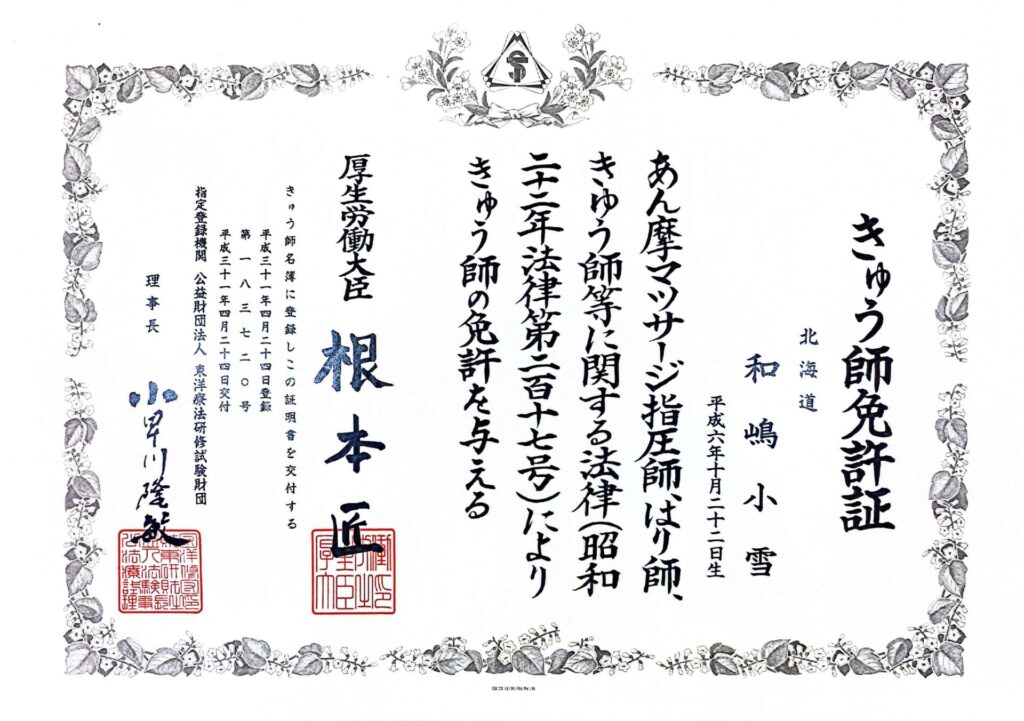 きゅう師免許証
北海道
和嶋小雪
平成六年十月二十二日生
あん摩マツサージ指圧師、はり師、
きゆう師等に関する法律(昭和
二十二年法律第二百十七号)により
きゅう師の免許を与える
厚生労働大臣 根本匠
きゅう師名簿に登録しこの証明書を交付する
平成三十一年四月二十四日登録
第一八三七二〇号
平成三十一年四月二十四日交付
指定登録機関 公益財団法人 東洋療法研修試験財団
理事長 小早川隆敏